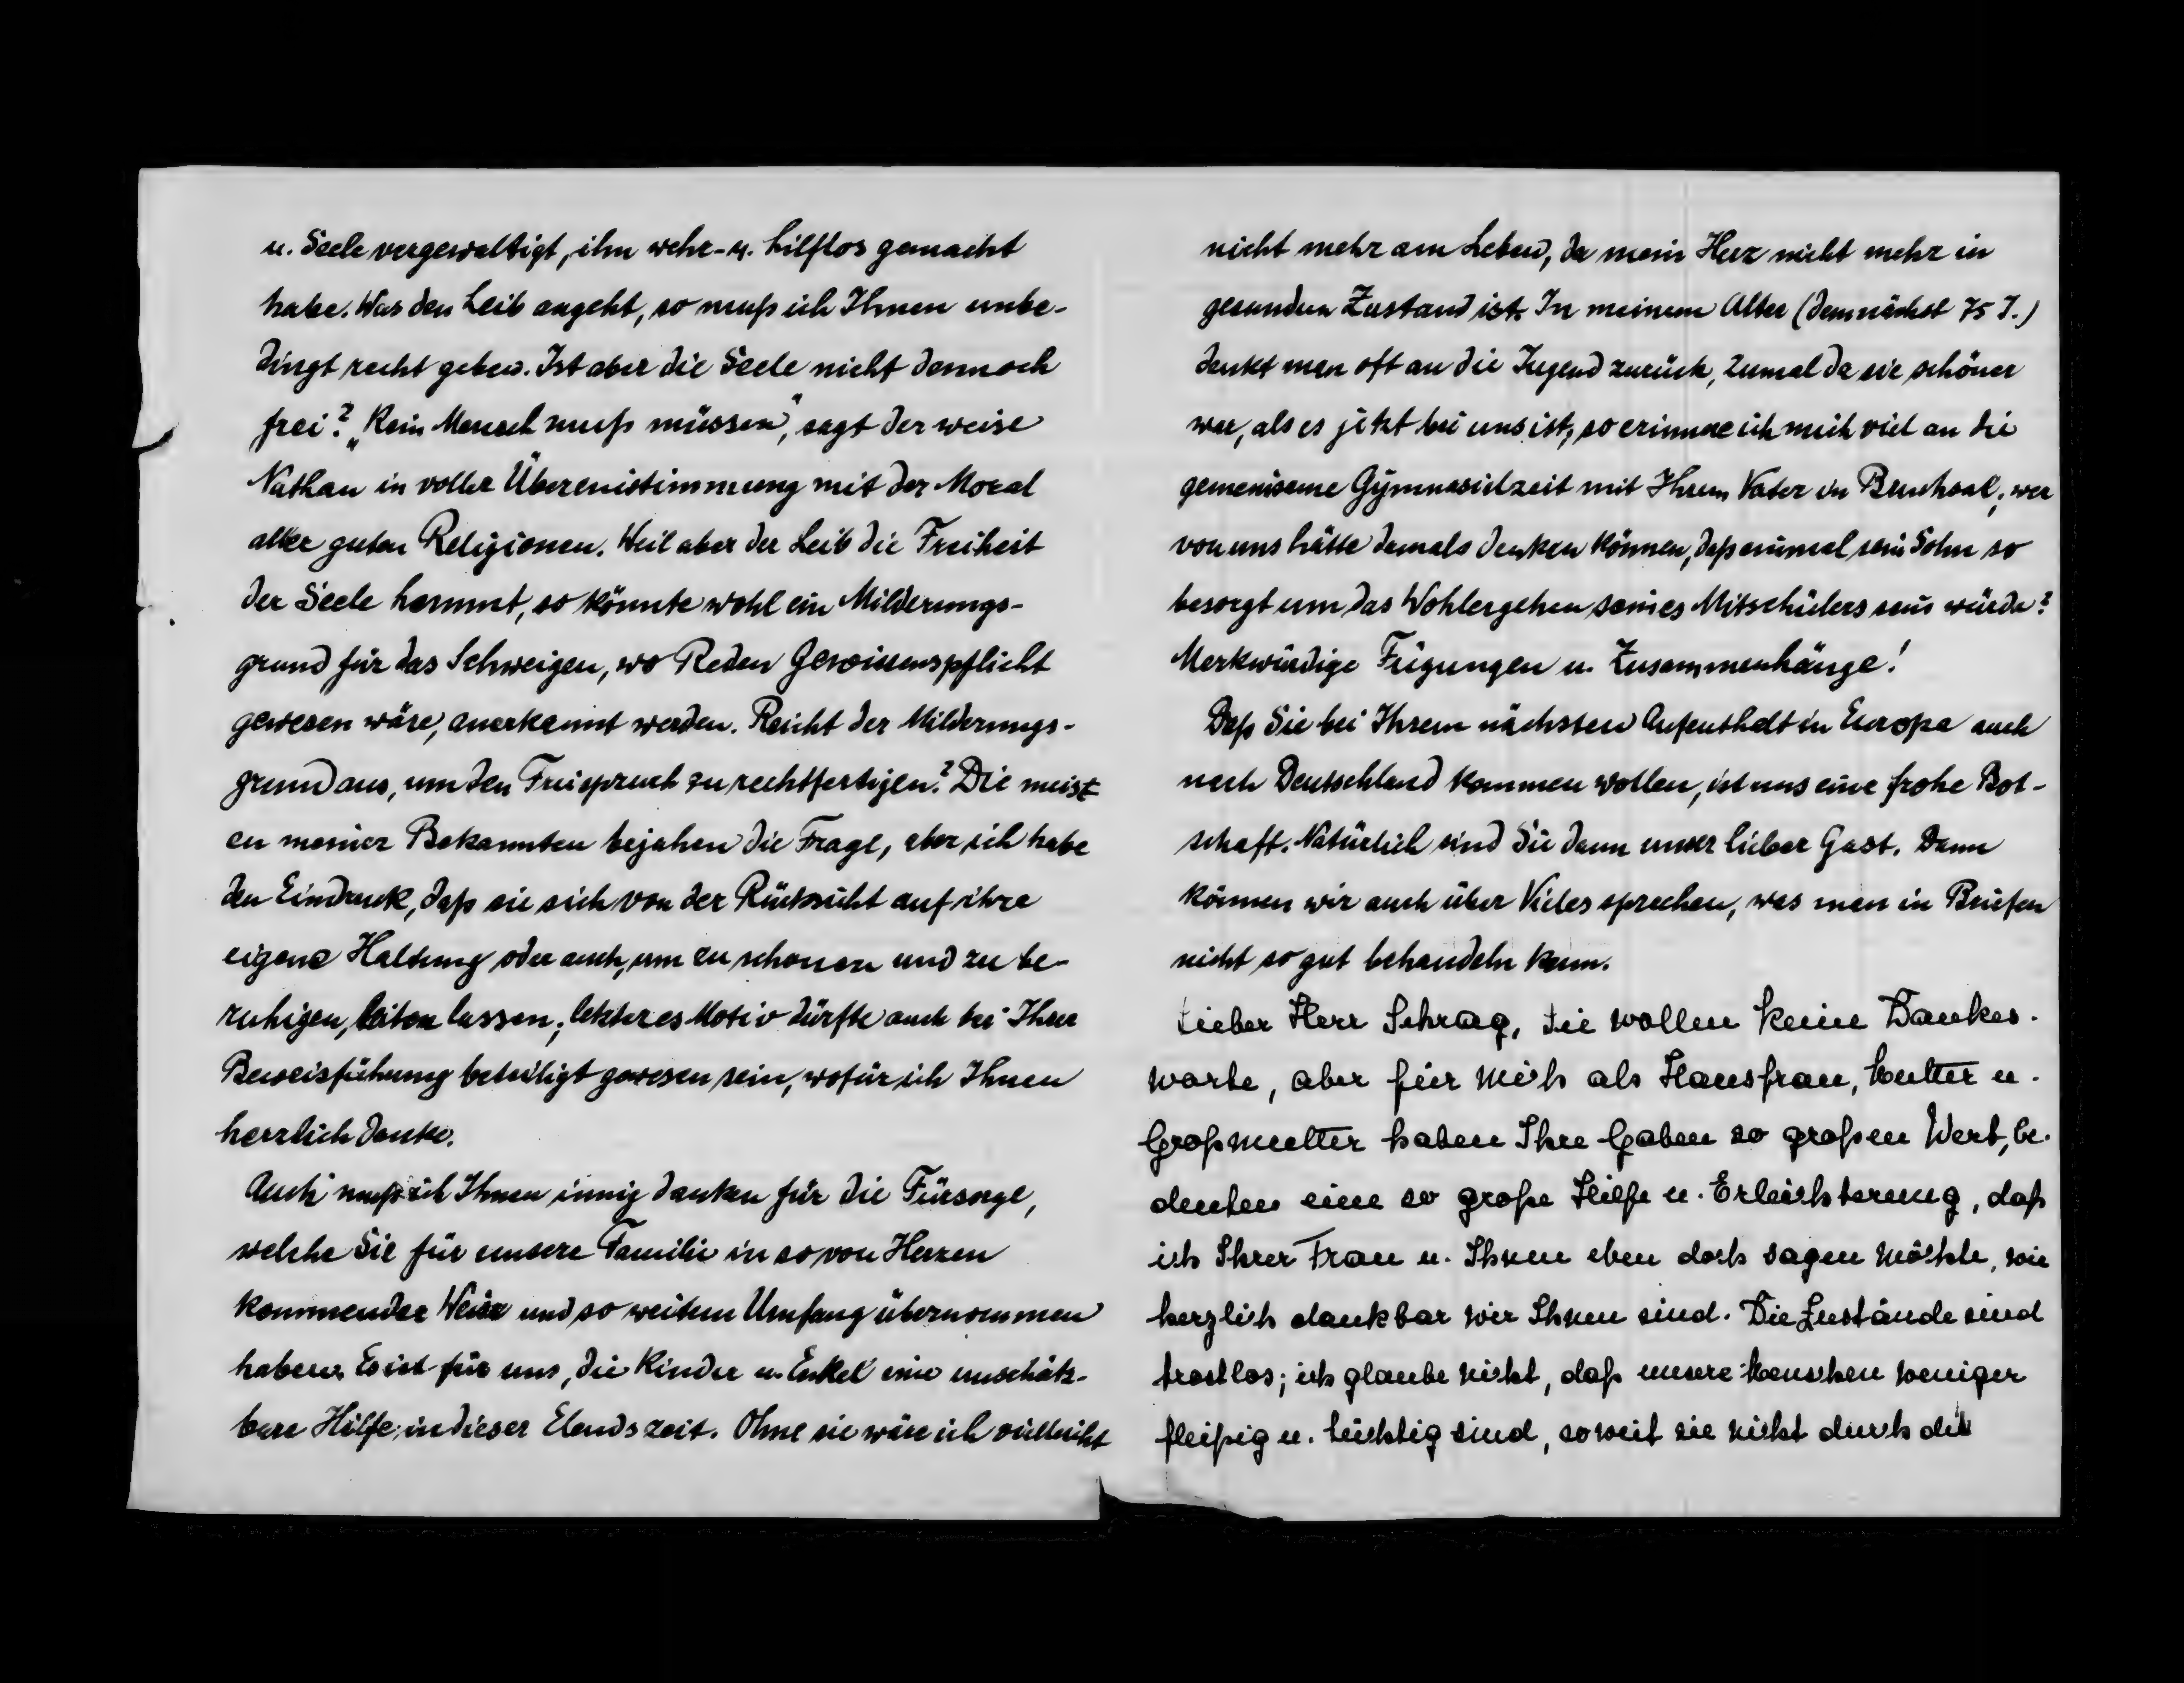 u. Seele vergewaltigt, ihn wehr- u. hilflos gemacht
habe. Was den Leib angeht, so muß ich Ihnen unbe-
dingt recht geben. Ist aber die Seele nicht dennoch
frei? „Kein Mensch muß müssen", sagt der weise
Nathan in voller Übereinstimmung mit der Moral
aller guten Religionen. Weil aber der Leib die Freiheit
der Seele hemmt, so könnte wohl ein Milderungs-
grund für das Schweigen, wo Reden Gewissenspflicht
gewesen wäre, anerkannt werden. Reicht der Milderungs-
grund aus, um den Freispruch zu rechtfertigen? Die meist
en meiner Bekannten bejahen die Frage, aber ich habe
den Eindruck, daß sie sich von der Rücksicht auf ihre
eigene Haltung oder auch, um zu schonen und zu be-
ruhigen, leiten lassen; letzteres Motiv dürfte auch bei Ihrer
Beweisführung beteiligt gewesen sein, wofür ich Ihnen
herzlich danke.
Auch muß ich Ihnen innig danken für die Fürsorge,
welche Sie für unsere Familie in so von Herzen
kommender Weise und so weitem Umfang übernommen
haben. Es ist für uns, die Kinder u. Enkel eine unschätz-
bare Hilfe in dieser Elendszeit. Ohne sie wäre ich vielleicht
nicht mehr am Leben, da mein Herz nicht mehr in
gesunden Zustand ist. In meinem Alter (demnächst 75 J.)
denkt man oft an die Jugend zurück, zumal da sie schöner
war, als es jetzt bei uns ist, so erinnere ich mich viel an die
gemeinsame Gymnasialzeit mit Ihrem Vater in Bruchsal; wer
von uns hätte damals denken können, daß einmal sein Sohn so
besorgt um das Wohlergehen seines Mitschülers sein würde?
Merkwürdige Fügungen u. Zusammenhänge!
Daß Sie bei Ihrem nächsten Aufenthalt in Europa auch
nach Deutschland kommen wollen, ist uns eine frohe Bot-
schaft. Natürlich sind Sie dann unser lieber Gast. Dann
können wir auch über Vieles sprechen, was man in Briefen
nicht so gut behandeln kann.
Lieber Herr Schrag, Sie wollen keine Dankes-
worte, aber für mich als Hausfrau, Mutter u.
Großmutter haben Ihre Gaben so großen Wert, be-
deuten eine so große Hilfe u. Erleichterung, daß
ich Ihrer Frau u. Ihnen eben doch sagen möchte, wie
herzlich dankbar wir Ihnen sind. Die Zustände sind
trostlos; ich glaube nicht, daß unsere Menschen weniger
fleißig u. tüchtig sind, soweit sie nicht durch die